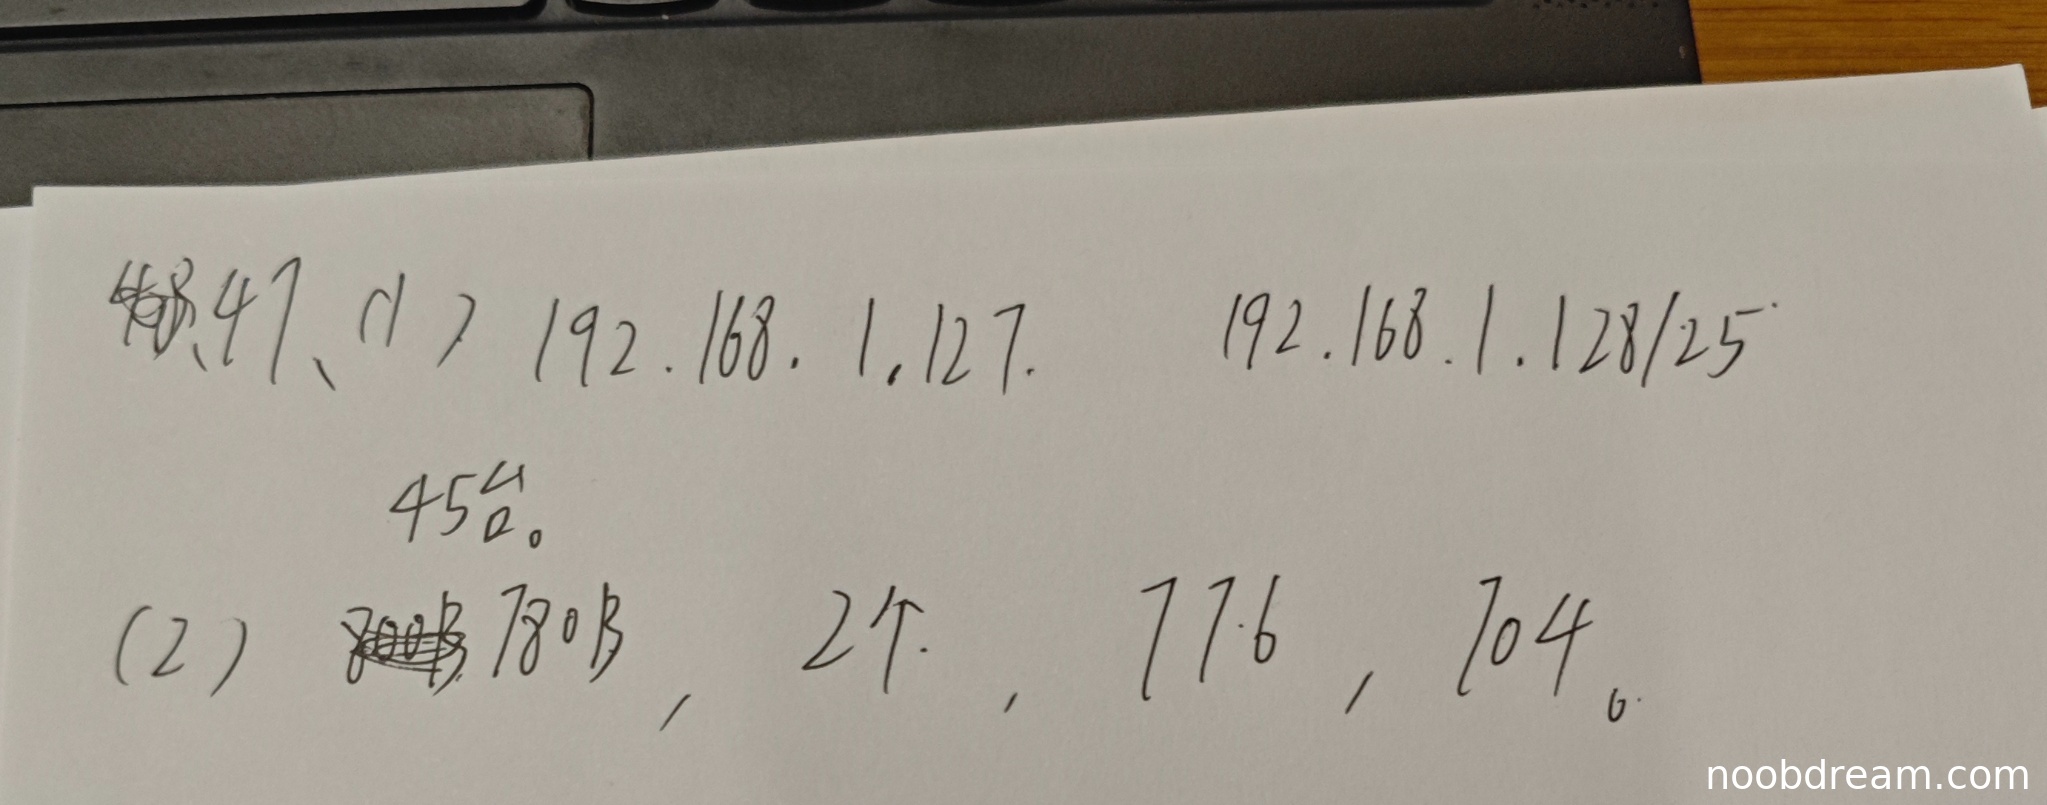 47、(1) 192.168.1.127. 192.168.1.128/25
45台。
(2) 780B, 2个. , 776, 704。
noobdream.com